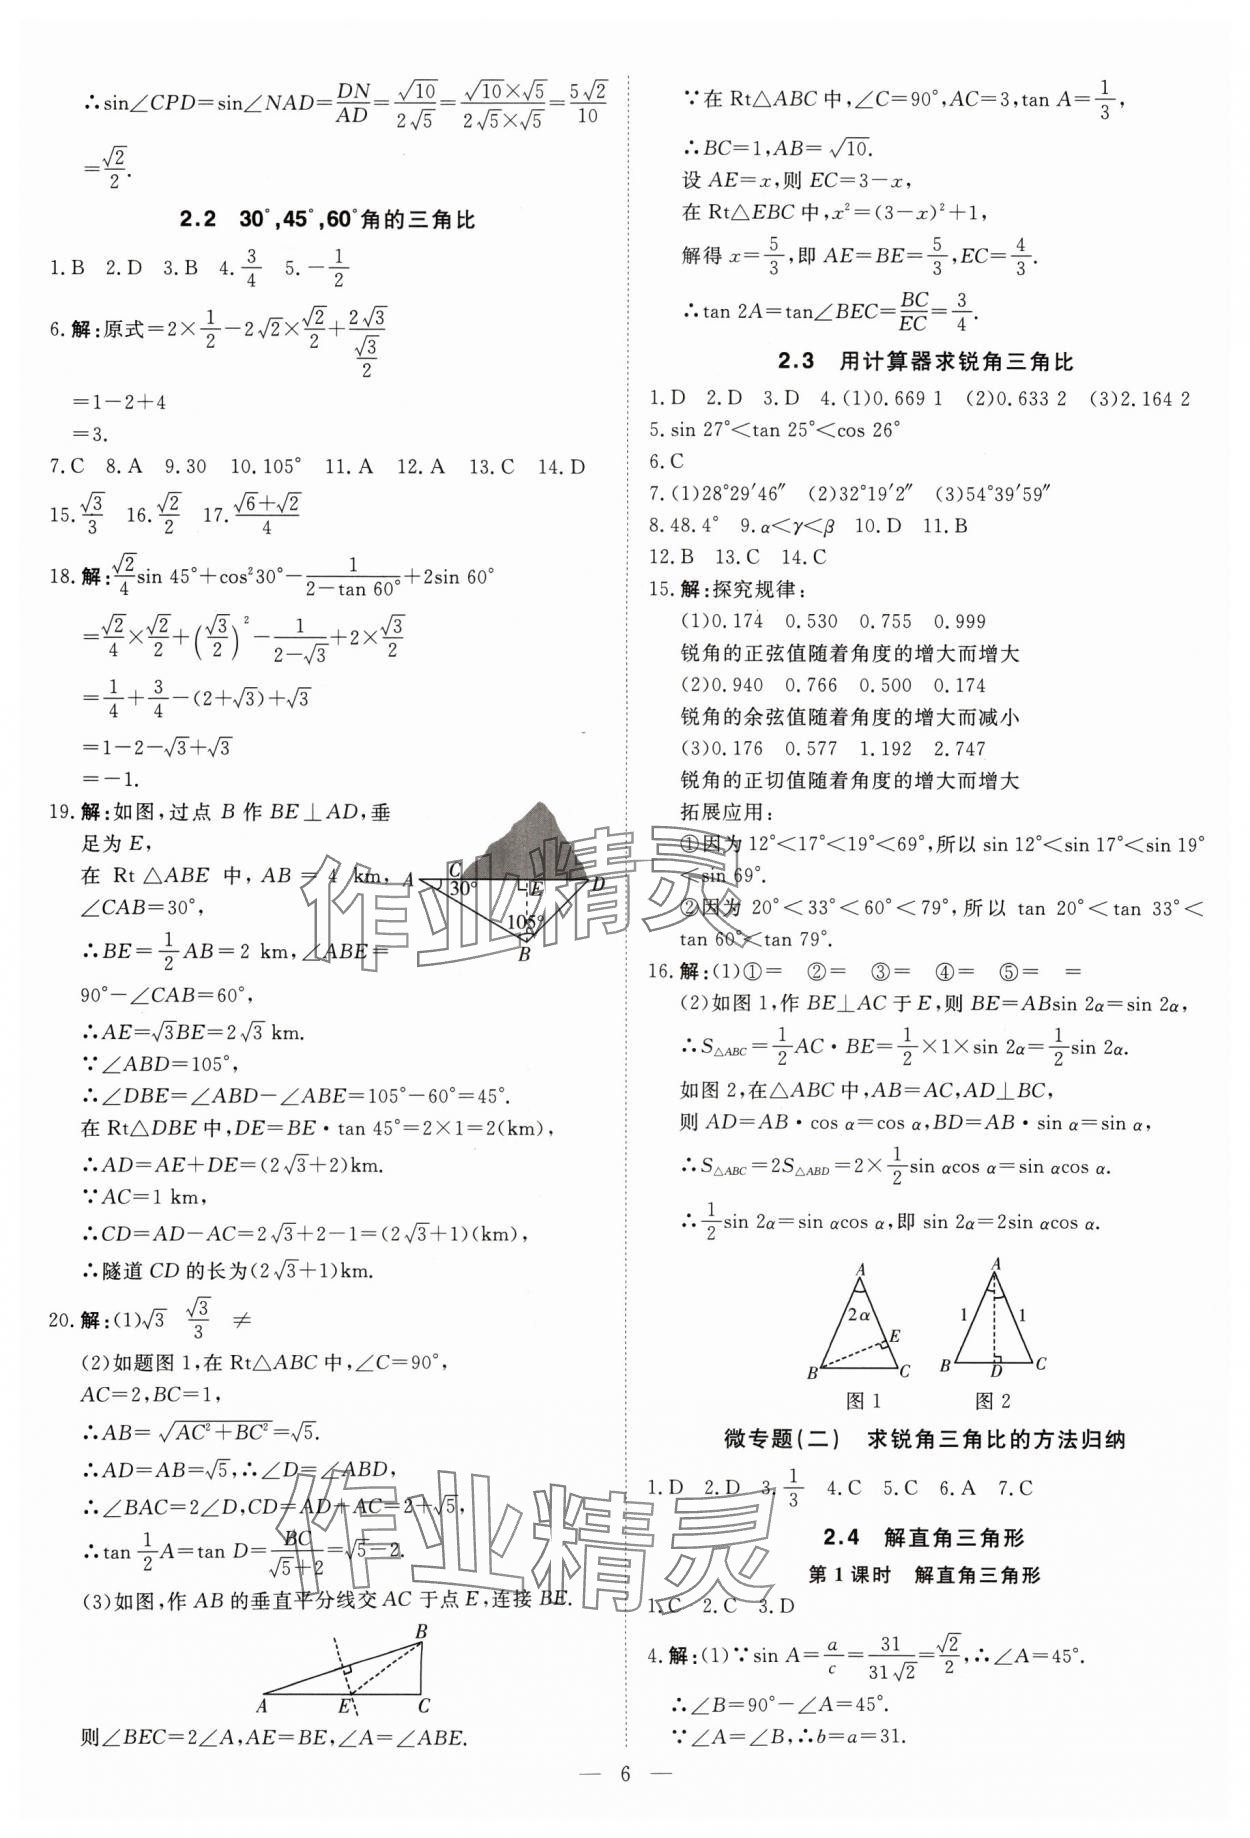 ∴sin∠CPD=sin∠NAD=DN/AD=√10/(2√5)=(√10×√5)/(2√5×√5)=5√2/10
=√2/2.
2.2 30°,45°,60°角的三角比
1.B 2.D 3.B 4.3/4 5.-1/2
6.解:原式=2×1/2-2√2×√2/2+2√3/(√3/2)
=1-2+4
=3.
7.C 8.A 9.30 10.105° 11.A 12.A 13.C 14.D
15.√3/3 16.√2/2 17.(√6+√2)/4
18.解:√2/4 sin 45°+cos²30°-1/(2-tan 60°)+2sin 60°
=√2/4×√2/2+(√3/2)²-1/(2-√3)+2×√3/2
=1/4+3/4-(2+√3)+√3
=1-2-√3+√3
=-1.
19.解:如图,过点 B 作 BE⊥AD,垂
足为 E,
在 Rt △ABE 中, AB = 4 km,
∠CAB=30°,
∴BE=1/2 AB=2 km,∠ABE=
90°-∠CAB=60°,
∴AE=√3BE=2√3 km.
∵∠ABD=105°,
∴∠DBE=∠ABD-∠ABE=105°-60°=45°.
在 Rt△DBE 中,DE=BE·tan 45°=2×1=2(km),
∴AD=AE+DE=(2√3+2)km.
∵AC=1 km,
∴CD=AD-AC=2√3+2-1=(2√3+1)(km),
∴隧道 CD 的长为(2√3+1)km.
A C 30° E D
105°
B
20.解:(1)√3 √3/3 ≠
(2)如题图 1,在 Rt△ABC 中,∠C=90°,
AC=2,BC=1,
∴AB=√(AC²+BC²)=√5.
∴AD=AB=√5,∴∠D=∠ABD,
∴∠BAC=2∠D,CD=AD+AC=2+√5,
∴tan 1/2 A=tan D=BC/(√5+2)=√5-2.
(3)如图,作 AB 的垂直平分线交 AC 于点 E,连接 BE.
B
A E C
则∠BEC=2∠A,AE=BE,∠A=∠ABE.
∵在 Rt△ABC 中,∠C=90°,AC=3,tan A=1/3,
∴BC=1,AB=√10.
设 AE=x,则 EC=3-x,
在 Rt△EBC 中,x²=(3-x)²+1,
解得 x=5/3,即 AE=BE=5/3,EC=4/3.
∴tan 2A=tan∠BEC=BC/EC=3/4.
2.3 用计算器求锐角三角比
1.D 2.D 3.D 4.(1)0.669 1 (2)0.633 2 (3)2.164 2
5.sin 27°<tan 25°<cos 26°
6.C
7.(1)28°29′46″ (2)32°19′2″ (3)54°39′59″
8.48.4° 9.α<γ<β 10.D 11.B
12.B 13.C 14.C
15.解:探究规律:
(1)0.174 0.530 0.755 0.999
锐角的正弦值随着角度的增大而增大
(2)0.940 0.766 0.500 0.174
锐角的余弦值随着角度的增大而减小
(3)0.176 0.577 1.192 2.747
锐角的正切值随着角度的增大而增大
拓展应用:
①因为 12°<17°<19°<69°,所以 sin 12°<sin 17°<sin 19°
<sin 69°.
②因为 20°<33°<60°<79°,所以 tan 20°<tan 33°<
tan 60°<tan 79°.
16.解:(1)①= ②= ③= ④= ⑤= =
(2)如图 1,作 BE⊥AC 于 E,则 BE=ABsin 2α=sin 2α,
∴S△ABC=1/2 AC·BE=1/2×1×sin 2α=1/2 sin 2α.
如图 2,在△ABC 中,AB=AC,AD⊥BC,
则 AD=AB·cos α=cos α,BD=AB·sin α=sin α,
∴S△ABC=2S△ABD=2×1/2 sin αcos α=sin αcos α.
∴1/2 sin 2α=sin αcos α,即 sin 2α=2sin αcos α.
A 2α E B C
A 1 1 B D C
图 1 图 2
微专题(二) 求锐角三角比的方法归纳
1.D 2.D 3.1/3 4.C 5.C 6.A 7.C
2.4 解直角三角形
第 1 课时 解直角三角形
1.C 2.C 3.D
4.解:(1)∵sin A=a/c=31/(31√2)=√2/2,∴∠A=45°.
∴∠B=90°-∠A=45°.
∵∠A=∠B,∴b=a=31.
— 6 —
作业精灵
作业精灵